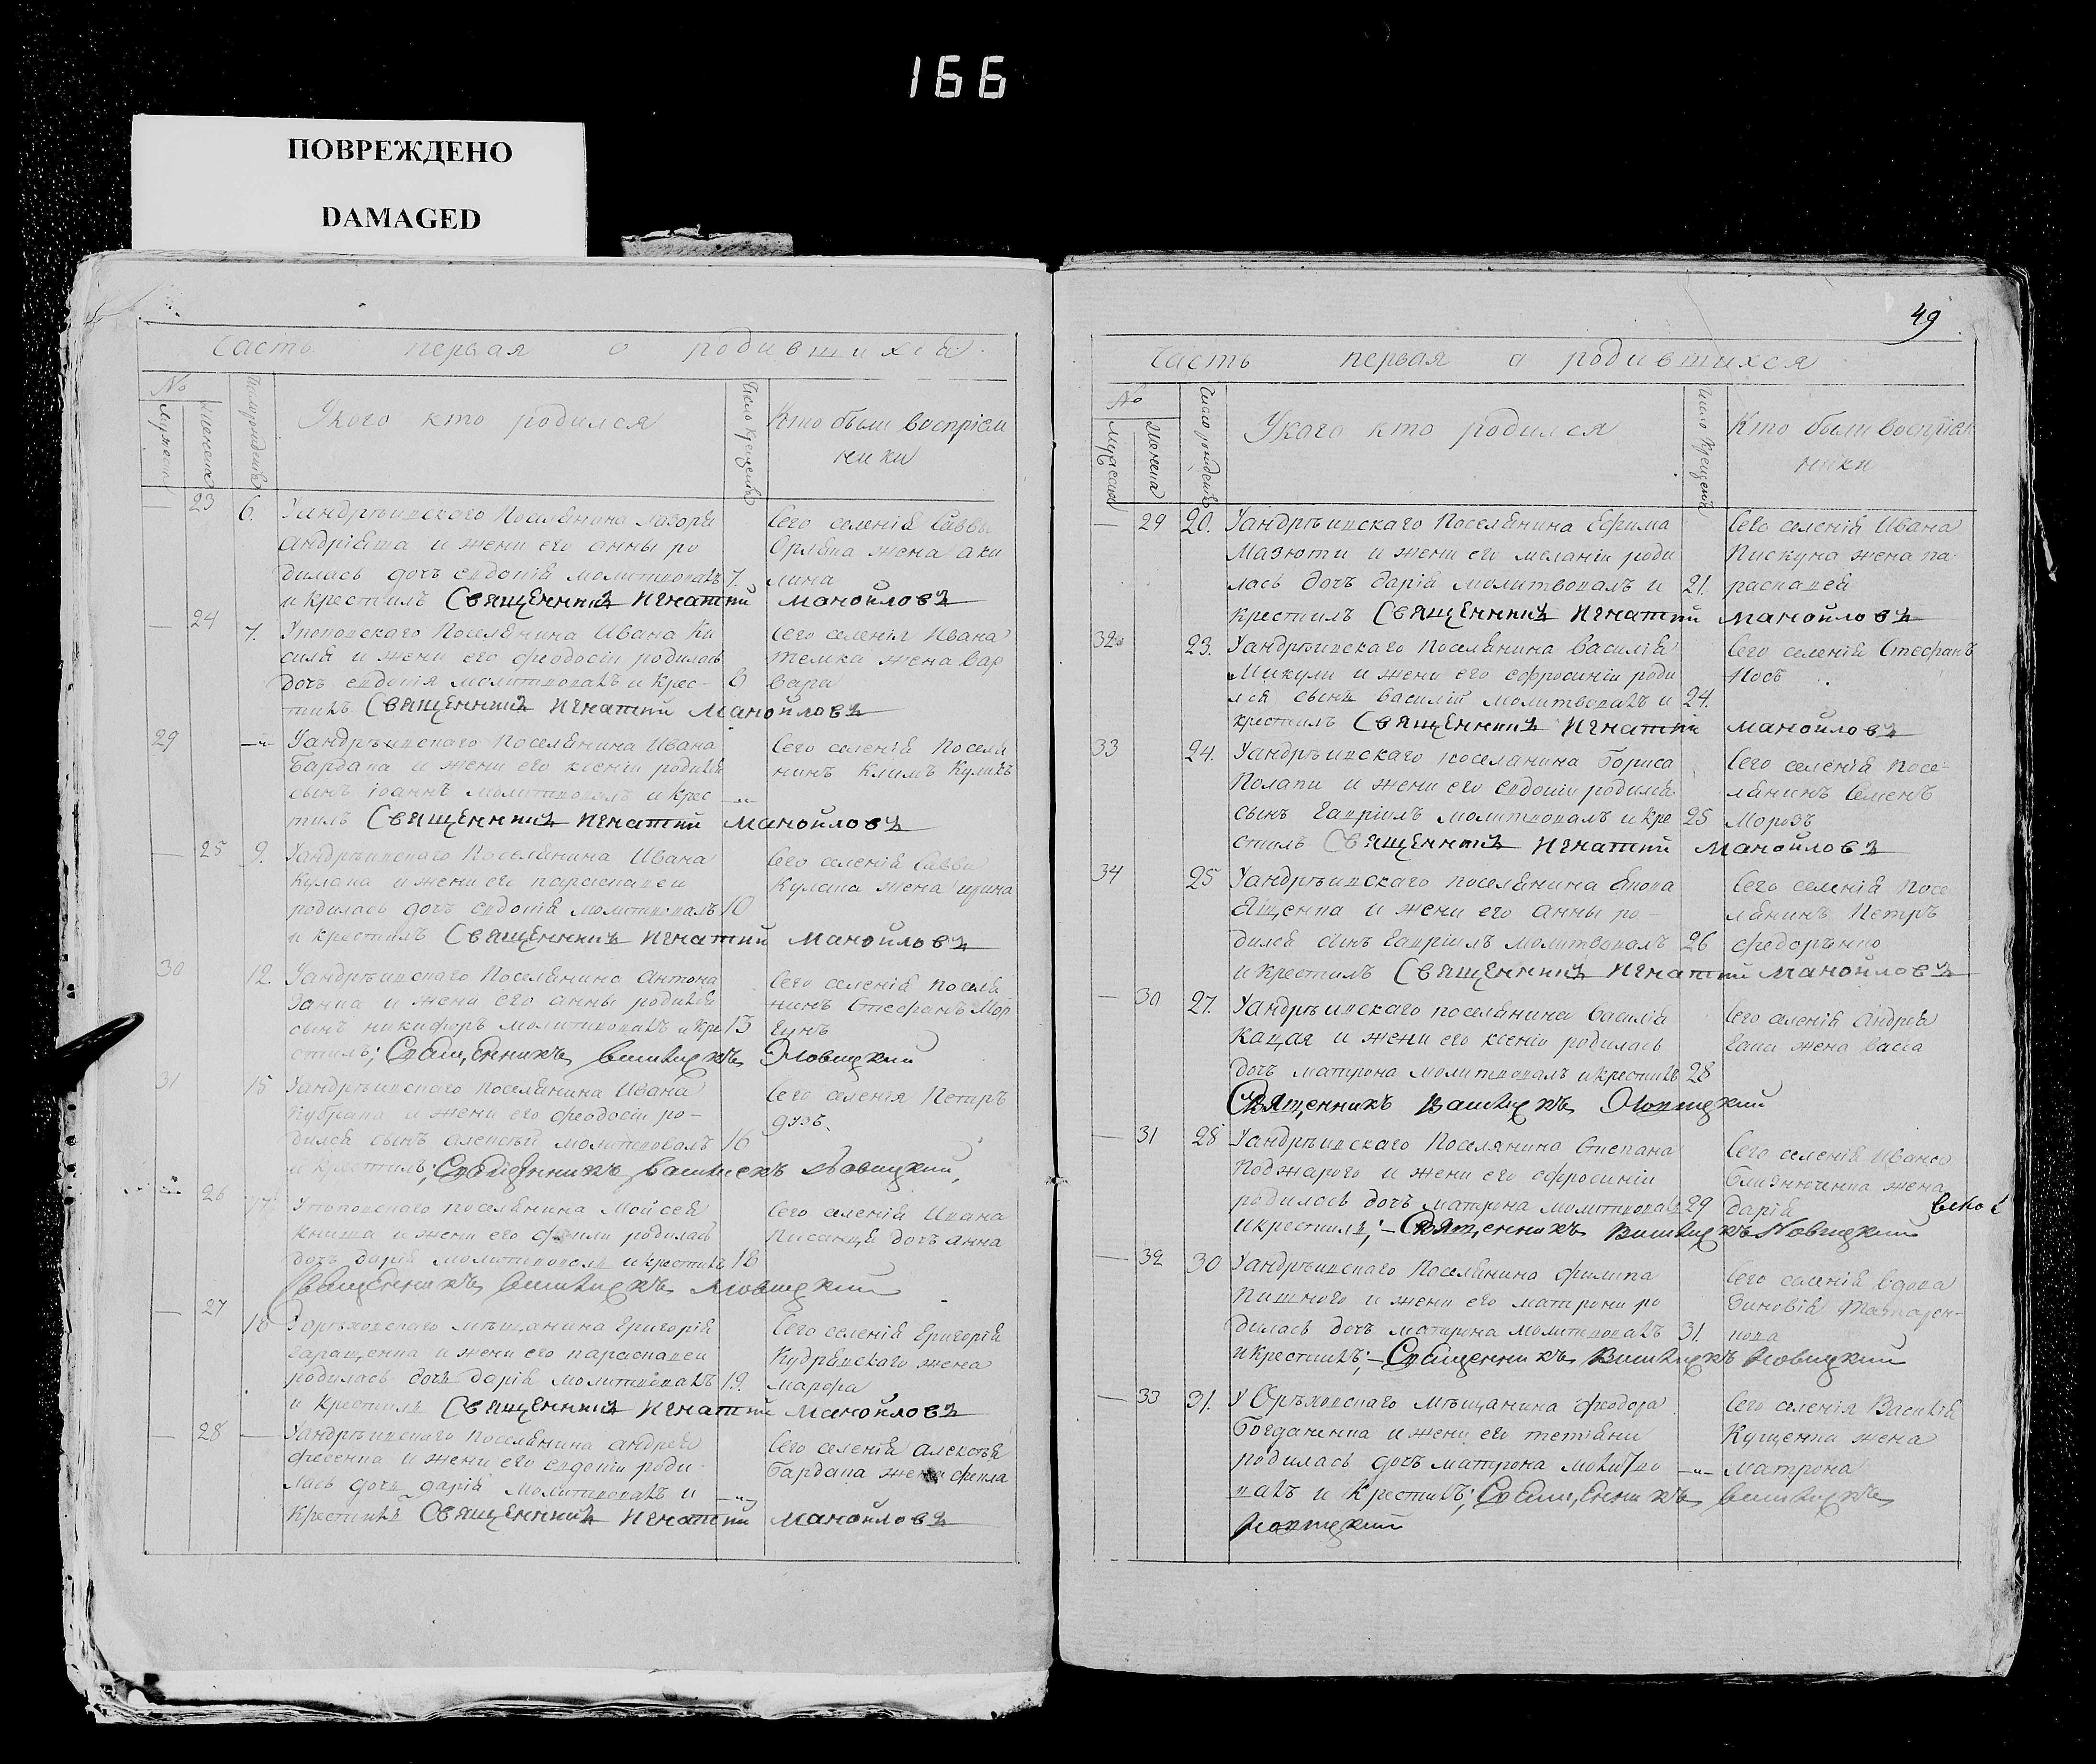 166
ПОВРЕЖДЕНО
DAMAGED
Часть первая о родившихся
№
Мужеска
Женска
Число рожденія
У кого кто родился
Число крещенія
Кто были воспріем
ники
23 6. У андрѣивского Поселянина Лазоря
андріяша и жени его анны ро
дилась дочъ евдокія молитвовалъ 7.
и крестилъ Священникъ Игнатий Манойловъ
Сего селенія Саввы
Орляна жена аки
лина
24 7. У поповского Поселянина Ивана Ки
силя и жени его феодосіи родилась
дочъ евдокія молитвовалъ и крес-
тилъ Священникъ Игнатий Манойловъ
Сего селенія Ивана
темка жена вар
вара
29 У андрѣивского Поселянина Ивана
Бардака и жени его ксеніи родился
сынъ іоаннъ молитвовалъ и крес
тилъ Священникъ Игнатий Манойловъ
Сего селенія Поселя
нинъ Климъ Куликъ
25 9. У андрѣивского Поселянина Ивана
Кулака и жени его параскавеи
родилась дочъ евдокія молитвовалъ 10
и крестилъ Священникъ Игнатий Манойловъ
Сего селенія Саввы
Кулака жена ирина
30 12. У андрѣивского Поселянина Антона
Заика и жени его анны родился
сынъ никифоръ молитвовалъ и кре 13
стилъ; Священникъ Василиекъ Новицкий
Сего селенія Поселя
нинъ Стефанъ Мор
гунъ
31 15 У андрѣивского Поселянина Ивана
Кубрака и жени его феодосіи ро-
дился сынъ алексѣй молитвовалъ 16
и крестилъ; Священникъ Новицкий
Сего селенія Петръ
дузь.
26 17 У поповского поселянина Мойсея
книша и жени его родилась
дочъ дарія молитвовалъ и крестилъ 18
Священникъ Новицкий
Сего селенія Ивана
Писанця дочъ анна
27 18 У орѣховского мѣщанина Григорія
Гаращенка и жени его параскавеи
родилась дочъ дарія молитвовалъ 19.
и крестилъ Священникъ Игнатий Манойловъ
Сего селенія Григорія
Кудрявского жена
марфа
28 У андрѣивского поселянина андрея
фесенка и жени его евдокіи роди
лась дочъ дарія молитвовалъ и
крестилъ Священникъ Игнатий Манойловъ
Сего селенія алексѣя
Бардака жена фекла
49
Часть первая о родившихся
№
Мужеска
Женска
Число рожденія
У кого кто родился
Число крещенія
Кто были воспріем
ники
29 20. У андрѣивского Поселянина Ефима
Мазюти и жени его меланіи роди
лась дочъ дарія молитвовалъ и 21.
крестилъ Священникъ Игнатий Манойловъ
Сего селенія Ивана
Пискуна жена па-
раскавея
32 23. У андрѣивского Поселянина Василія
Микули и жени его ефросиніи роди
лся сынъ василій молитвовалъ и 24.
крестилъ Священникъ Игнатий Манойловъ
Сего селенія Стефанъ
Носъ
33 24. У андрѣивского поселянина Бориса
Полапи и жени его евдокіи родился
сынъ гавріилъ молитвовалъ и кре 25
стилъ Священникъ Игнатий Манойловъ
Сего селенія посе-
лянинъ Семенъ
Морозъ
34 25 У андрѣивского поселянина Якова
Ященка и жени его анны ро-
дился сынъ гавріилъ молитвовалъ 26
и крестилъ Священникъ Игнатий Манойловъ
Сего селенія посе
лянинъ Петръ
федорѣнко
30 27. У андрѣивского поселянина Василія
Кацая и жени его ксеніи родилась
дочъ матрона молитвовалъ и крестилъ 28
Священникъ Новицкий
Сего селенія Андрея
жена васса
31 28 У андрѣивского Поселянина Степана
Поджарого и жени его ефросиніи
родилась дочъ матрона молитвовалъ 29
и крестилъ; — Священникъ Новицкий
Сего селенія Ивана
Близнюченка жена
дарія
32 30 У андрѣивского Поселянина филипа
Пишного и жени его матрони ро
дилась дочъ матрона молитвовалъ 31.
и крестилъ; — Священникъ Новицкий
Сего селенія вдова
Зиновія
нова
33 31. У Орѣховского мѣщанина феодора
Богданенка и жени его тетіяни
родилась дочъ матрона молитво
валъ и крестилъ; Священникъ
Новицкий
Сего селенія Василія
Кущенка жена
матрона